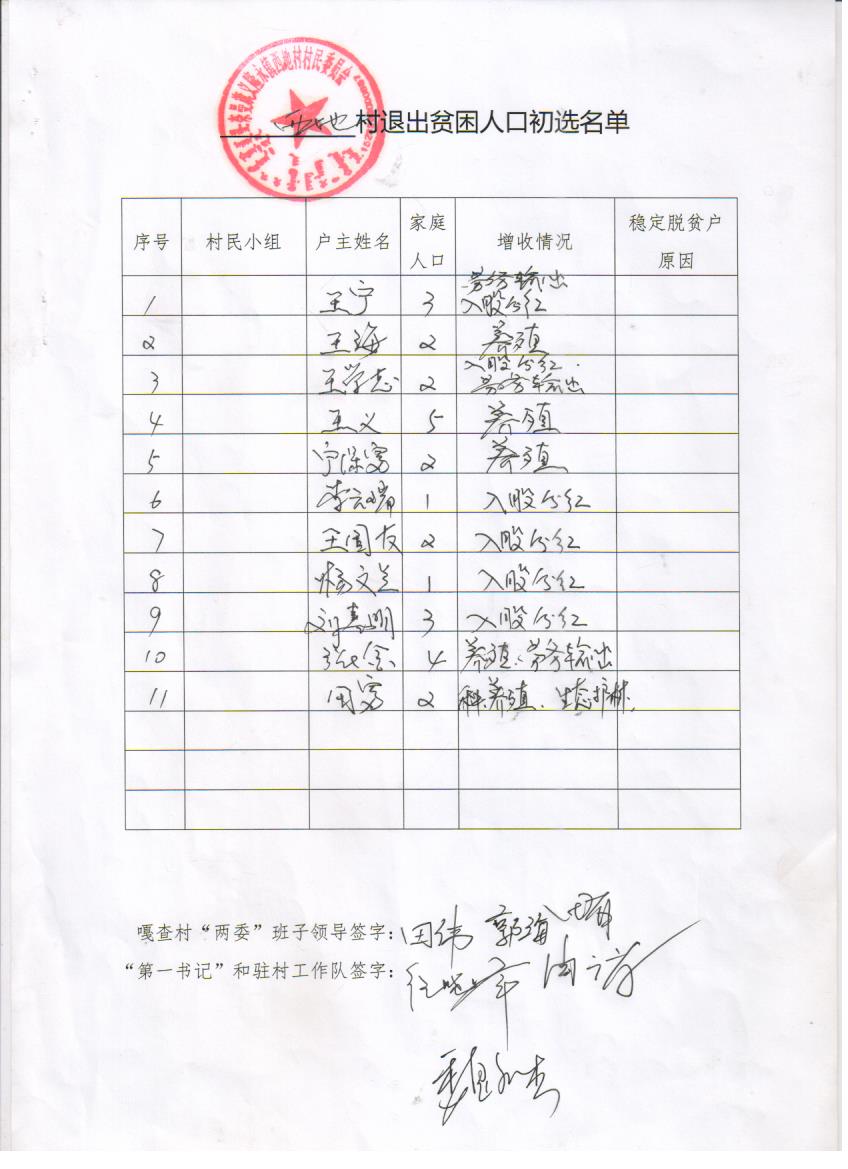 西地村退出贫困人口初选名单
序号 村民小组 户主姓名 家庭人口 增收情况 稳定脱贫户原因
1 王宁 3 劳务输出 入股分红
2 王海 2 养殖
3 王学志 2 入股分红. 劳务输出
4 王义 5 养殖
5 宁保富 2 养殖
6 李云瑞 1 入股分红
7 王国友 2 入股分红
8 杨文兰 1 入股分红
9 刘惠明 3 入股分红
10 4 养殖、劳务输出
11 田富 2 养殖、生态护林
嘎查村“两委”班子领导签字：田伟 郭海
“第一书记”和驻村工作队签字：